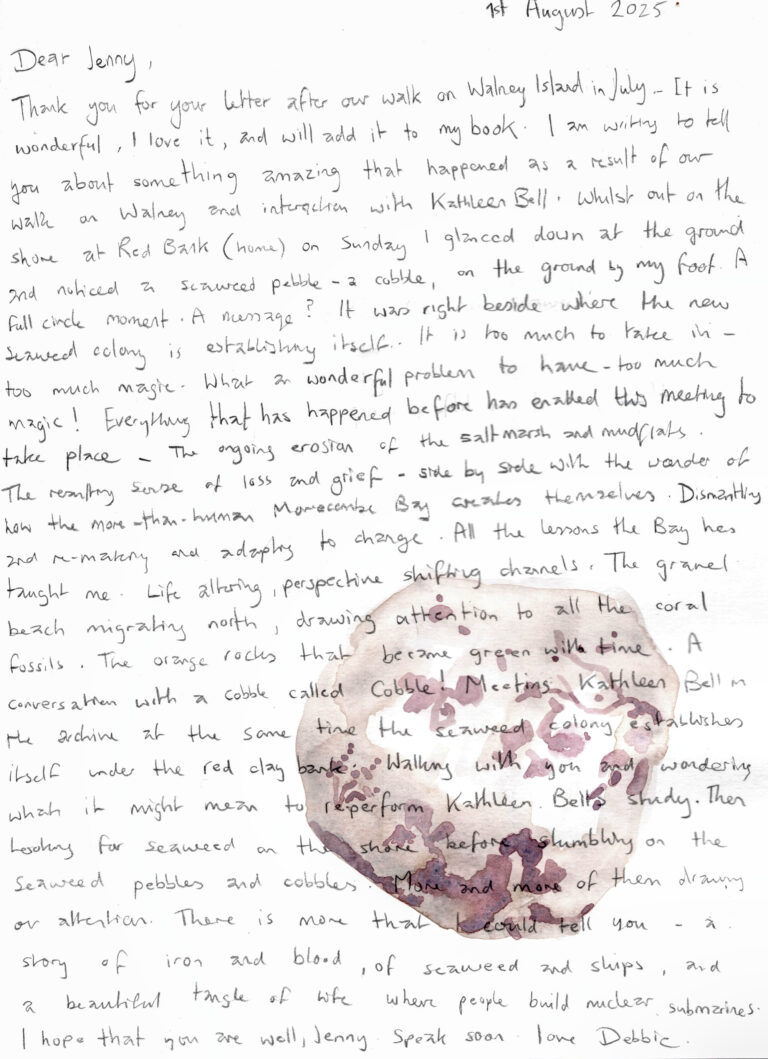 1st August 2025.
Dear Jenny,
Thank you for your letter after our walk on Walney Island in July - It is
wonderful, I love it, and will add it to my book. I am writing to tell
you about something amazing that happened as a result of our
walk on Walney and interaction with Kathleen Bell. Whilst out on the
shore at Red Bank (home) on Sunday I glanced down at the ground
and noticed a seaweed pebble - a cobble, on the ground by my foot. A
full circle moment. A message? It was right beside where the new
seaweed colony is establishing itself. It is too much to take in -
too much magic. What a wonderful problem to have - too much
magic! Everything that has happened before has enabled this meeting to
take place - The ongoing erosion of the saltmarsh and mudflats.
The resulting sense of loss and grief - side by side with the wonder of
how the more-than-human Morecambe Bay creates themselves. Dismantling
and re-making and adapting to change. All the lessons the Bay has
taught me. Life altering, perspective shifting channels. The gravel
beach migrating north, drawing attention to all the coral
fossils. The orange rocks that became green with time. A
conversation with a cobble called Cobble! Meeting Kathleen Bell in
the archive at the same time the seaweed colony establishes
itself under the red clay bank. Walking with you and wondering
what it might mean to re-perform Kathleen Bell's study. Then
looking for seaweed on the shore before stumbling on the
seaweed pebbles and cobbles. More and more of them drawing
our attention. There is more that I could tell you - a
story of iron and blood, of seaweed and ships, and
a beautiful tangle of life where people build nuclear submarines.
I hope that you are well, Jenny. Speak soon. love Debbie.